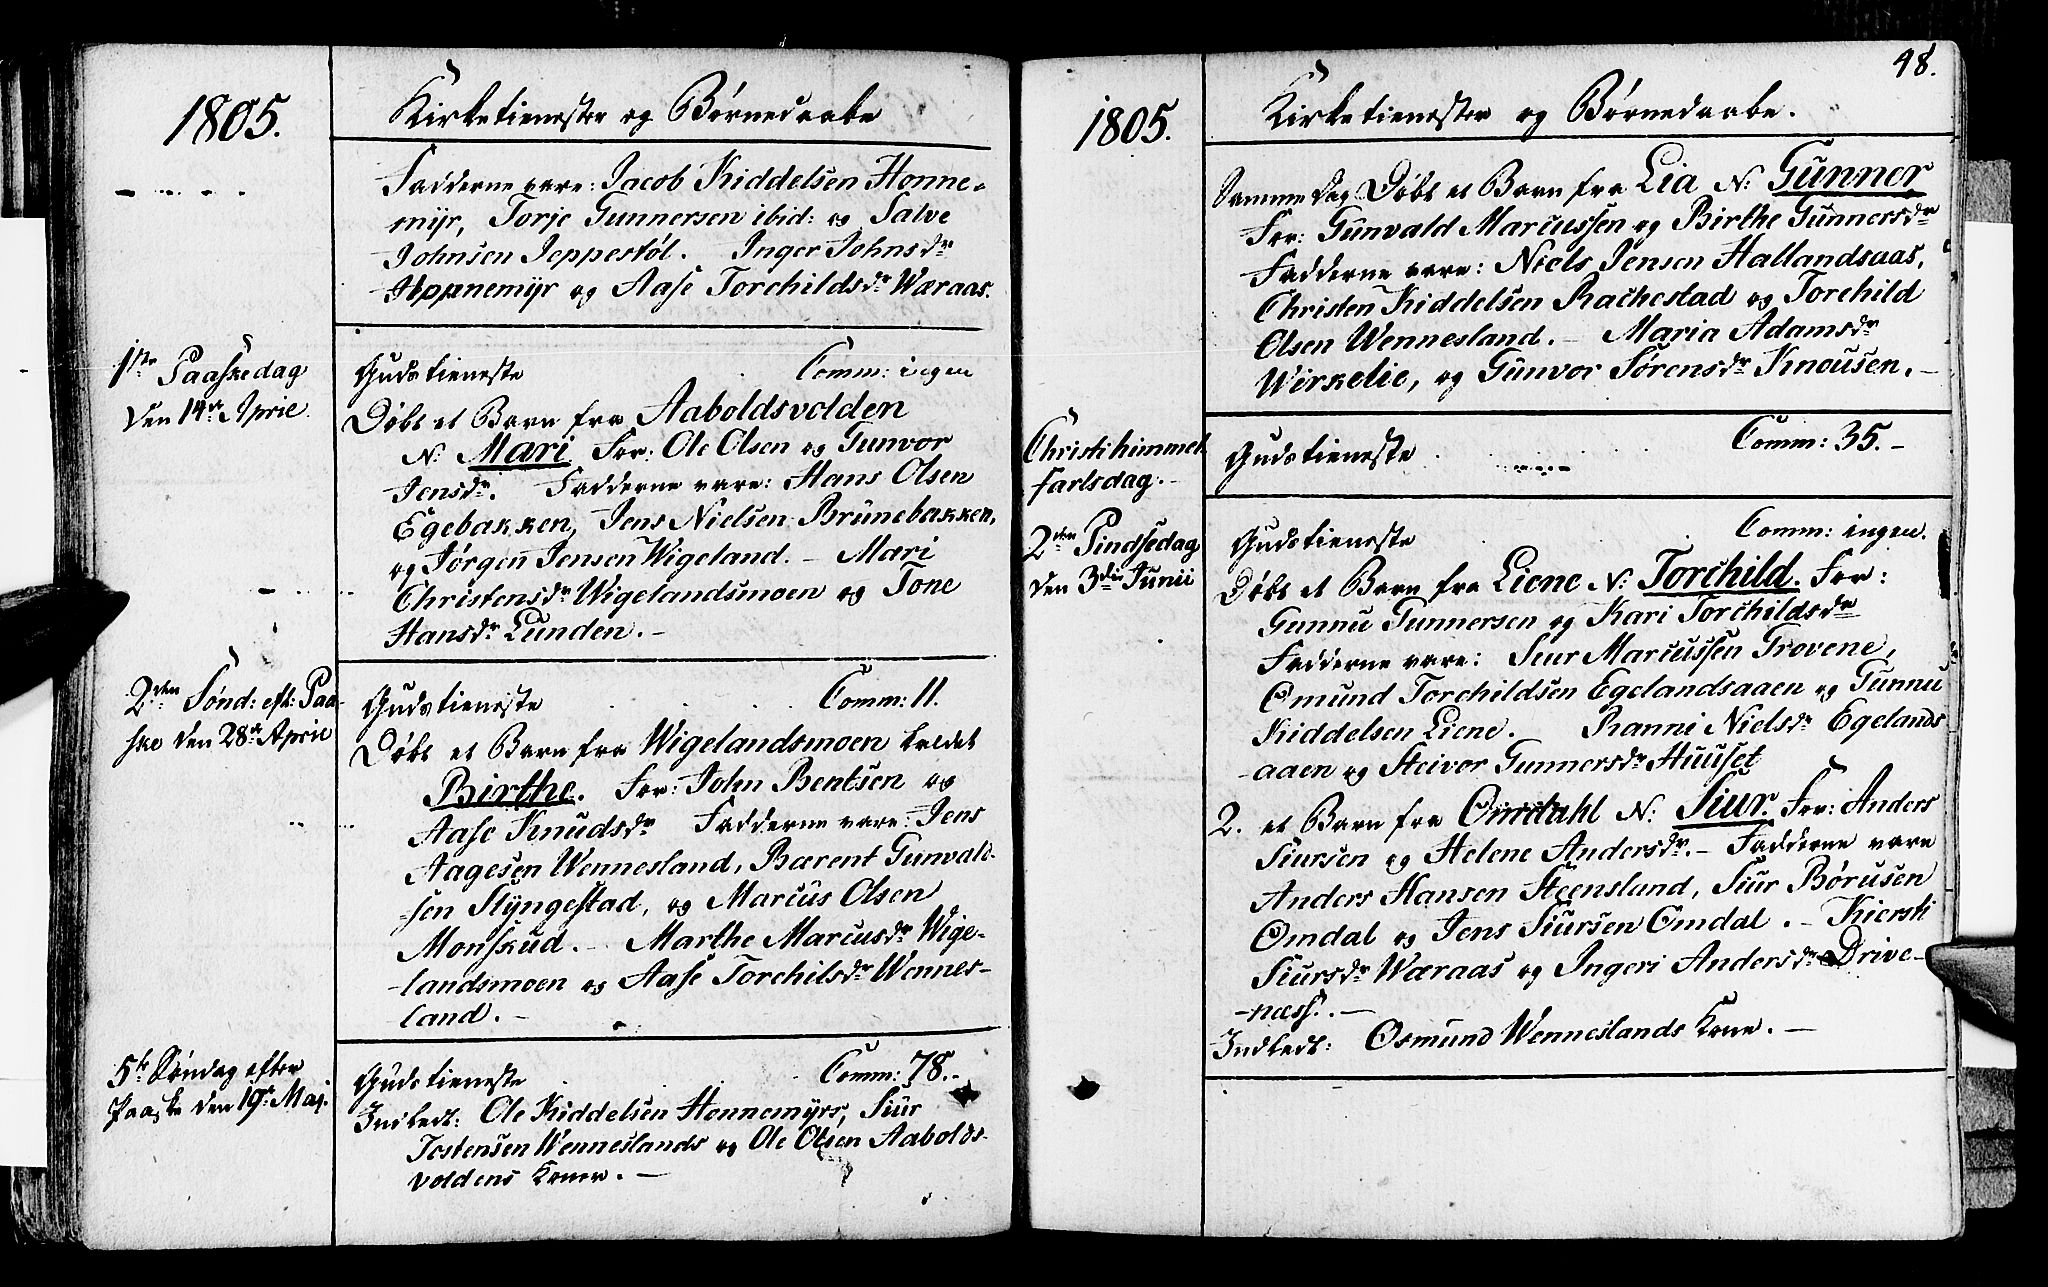 1805.
Kirketienester og Børnedaabe
Fadderne vare: Jacob Kiddelsen Honne-
myr, Torje Gunnersen ibid: og Salve
Johnsen Jeppestøl. Inger Johnsdr
Honnemyr og Aase Torchildsdr Wæraas.
1ste Paaskedag
den 14de April
Gudstieneste Comm: ingen
Døbt et Barn fra Aaboldsvolden
N: Mari For: Ole Olsen og Gunvor
Jensdr. Fadderne vare: Hans Olsen
Egebakken, Jens Nielsen Brunebakken,
og Jørgen Jensen Wigeland. – Mari
Christensdr Wigelandsmoen og Tone
Hansdr Lunden. –
2den Sønd: eft: Paa-
ske den 28de April
Gudstieneste Comm: 11.
Døbt et Barn fra Wigelandsmoen kaldet
Birthe. For: John Bentsen og
Aase Knudsdr Fadderne vare: Jens
Aagesen Wennesland, Bærent Gunvald-
-sen Slyngestad, og Marcus Olsen
Monskud. – Marthe Marcusdr Wige-
-landsmoen og Aase Torchilsdr Wennes-
-land. –
5te Søndag efter
Paaske den 19de Maj.
Gudstieneste Comm: 78. –
Indledt: Ole Kiddelsen Honnemyrs, Siur
Tostensen Wenneslands og Ole Olsen Aabolds-
voldens Koner. –
48.
1805.
Kirketienester og Børnedaabe.
Samme dag Døbt et Barn fra Lia N: Gunner
For: Gunvald Marcussen og Birthe Gunnersdr
Fadderne vare: Niels Jensen Hallandsaas,
Christen Kiddelsen Rachestad og Torchild
Olsen Wennesland. – Maria Adamsdr
Wirkelie, og Gunvor Sørensdr Knousen. –
Christi himmel-
farlsdag. –
Gudstieneste Comm: 35. –
2den Pindsedag
den 3die Junii
Gudstieneste Comm: ingen.
Døbt et Barn fra Liene N: Torchild. For:
Gunnu Gunnersen og Kari Torchildsdr
Fadderne vare: Siur Marcussen Grovene,
Omund Torchildsen Egelandsaaen og Gunnu
Kiddelsen Liene. Ranni Nielsdr Egelands
-aaen og Steivor Gunnersdr Huuset
2. et Barn fra Omdahl N: Siur. For: Anders
Siursen og Helene Andersdr. – Fadderne vare
Anders Hansen Steensland, Siur Børusen
Omdal og Jens Siursen Omdal. – Kiersti
Siursdr Wæraas og Ingeri Andersdr Drive-
-næss. –
Indledt: Osmund Wenneslands Kone. –